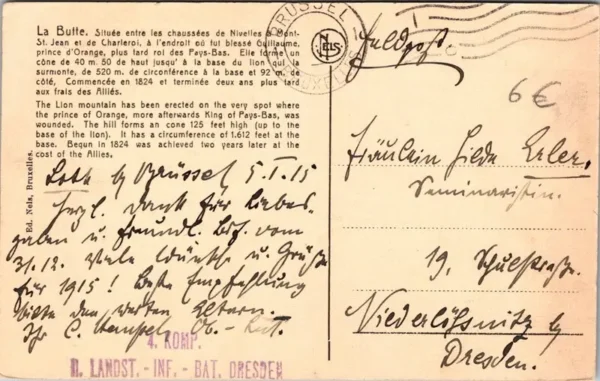 La Butte. Située entre les chaussées de Nivelles à Mont-
St. Jean et de Charleroi, à l'endroit où fut blessé Guillaume,
prince d'Orange, plus tard roi des Pays-Bas. Elle forme un
cône de 40 m. 50 de haut jusqu' à la base du lion qui la
surmonte, de 520 m. de circonférence à la base et 92 m. de
côté, Commencée en 1824 et terminée deux ans plus tard
aux frais des Alliés.
The Lion mountain has been erected on the very spot where
the prince of Orange, more afterwards King of Pays-Bas, was
wounded. The hill forms an cone 125 feet high (up to the
base of the lion). It has a circumference of 1.612 feet at the
base. Begun in 1824 was achieved two years later at the
cost of the Allies.
Ed. Nels, Bruxelles.
Loth b/ Brüssel 5.I.15
Herzl. Dank für Liebes-
gaben u. freundl. Brf. vom
31.12. Viele Wünsche u. Grüße
für 1915! Beste Empfehlung
bitte den werten Eltern.
Ihr C. Stempel Ob.-Lt.
4. KOMP.
II. LANDST.-INF.-BAT. DRESDEN
BRUSSEL
NELS
Feldpost
6€
Fräulein Hilde Erler,
Seminaristin.
19, Schulstraße.
Niederlößnitz b/
Dresden.